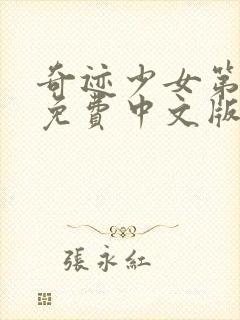 奇迹少女第
免費中文版
張永紅